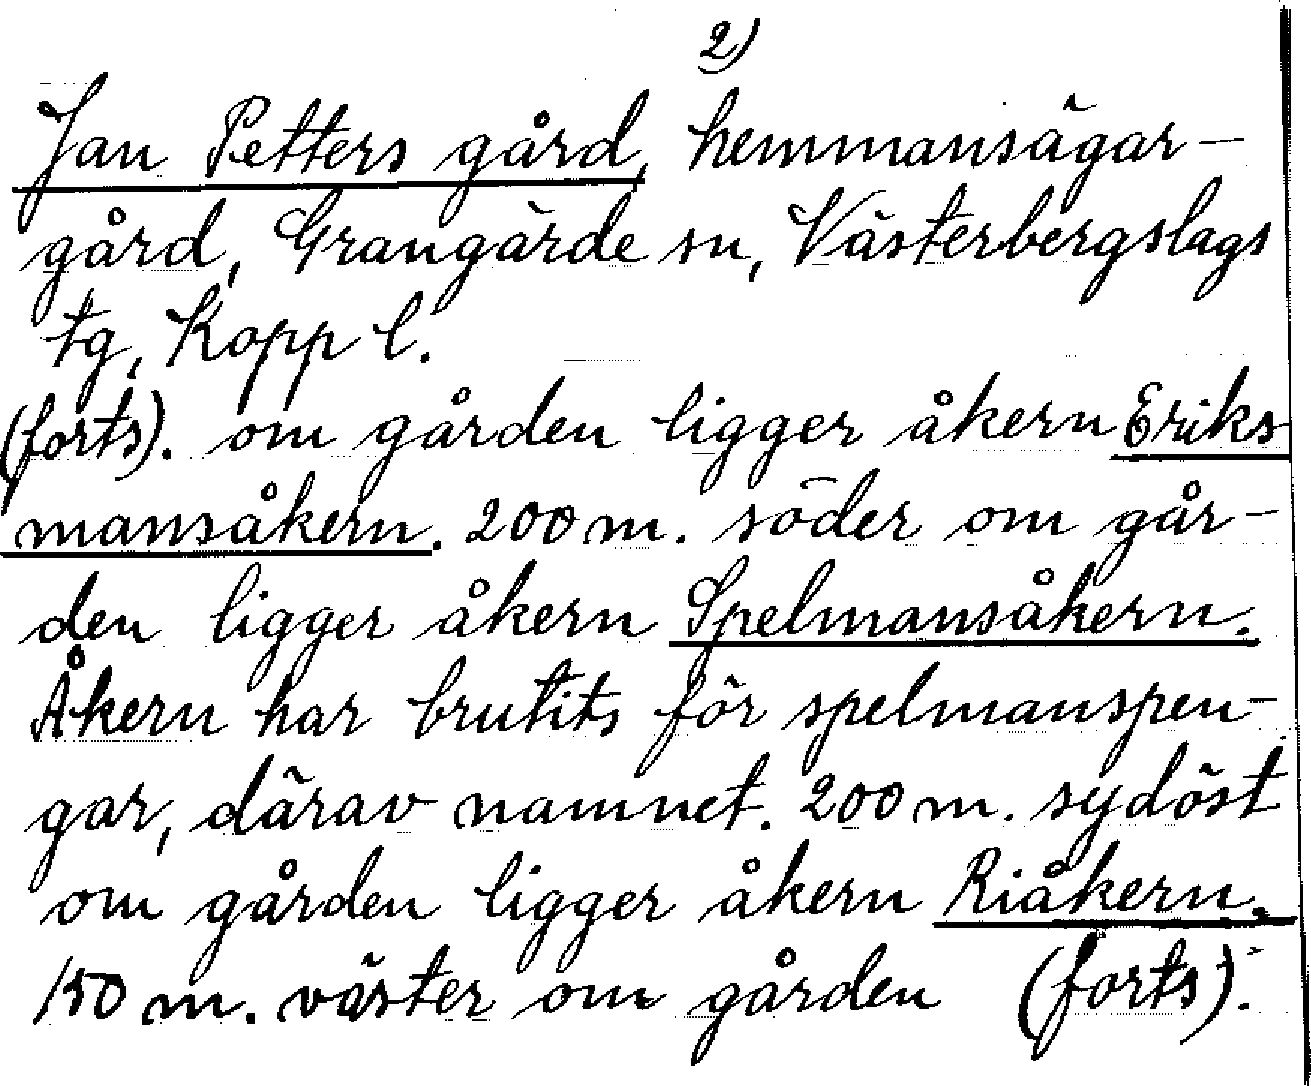 2)
Jan Petters gård, hemmansägar-
gård, Grangärde sn, Västerbergslags
tg, Kopp l.
(forts). om gården ligger åkern Eriks
mansåkern. 200 m. söder om går-
den ligger åkern Spelmansåkern.
Åkern har brutits för spelmanspen-
gar, därav namnet. 200 m. sydöst
om gården ligger åkern Riåkern.
150 m. väster om gården (forts).